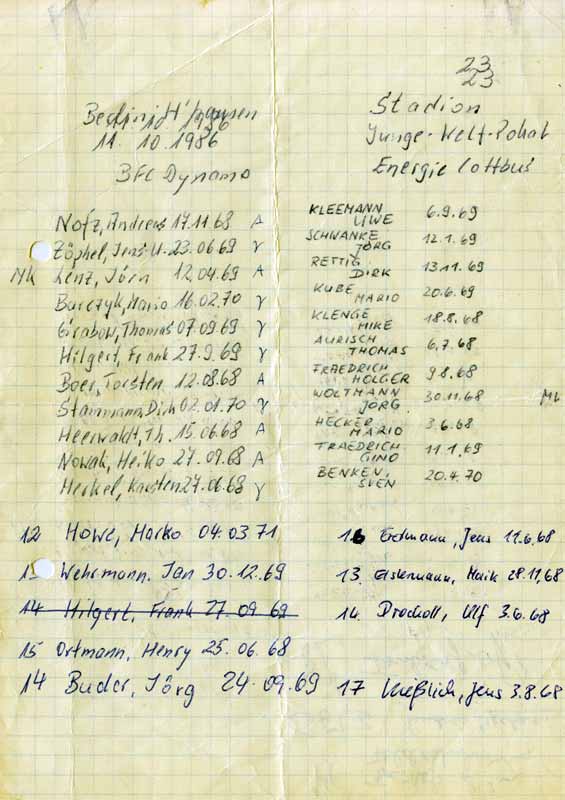 23
23
Stadion
11.10.1986
Junge-Welt-Pokal
BFC Dynamo
Energie Cottbus
Notz, Andreas 17.11.68 A
KLEEMANN UWE 6.9.69
Zöphel, Jens-U. 23.06.69 Y
SCHWANKE JÖRG 12.1.69
MK Lenz, Jörn 12.04.69 A
RETTIG DIRK 13.11.69
Burczyk, Mario 16.02.70 Y
KUBE MARIO 20.6.69
Grabow, Thomas 07.09.69 Y
KLENGE MIKE 18.8.68
Hilgert, Frank 27.9.69 Y
AURISCH THOMAS 6.7.68
Boer, Torsten 12.08.68 A
FRAEDRICH HOLGER 9.8.68
Stammann, Dirk 02.01.70 Y
WOLTMANN JÖRG. 30.11.68 MK
Heerwaldt, Th. 15.06.68 A
HECKER MARIO 3.6.68
Nowak, Heiko 27.09.68 A
TRAEDRICH GINO 11.1.69
Merkel, Karsten 27.06.68 Y
BENKEN, SVEN 20.4.70
12 Howe, Marko 04.03.71
16 Erdmann, Jens 11.6.68
13 Wehrmann. Jan 30.12.69
13. Elstermann, Maik 28.11.68
14 Hilgert, Frank 27.09.69
14. Drocholl, Ulf 3.6.68
15 Ortmann, Henry 25.06.68
14 Buder, Jörg 24.09.69
17 Kießlich, Jens 3.8.68